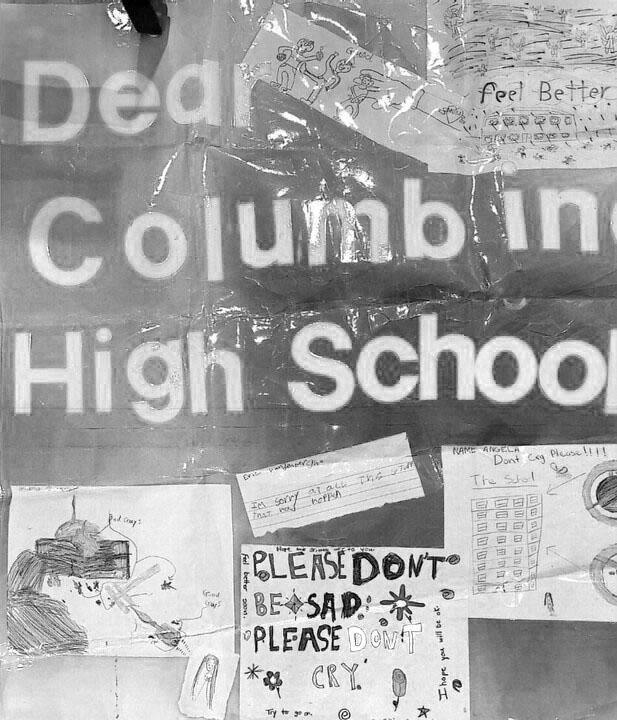 Dear
Feel Better
Columbine
High School
Im sorry at all this stuff
that has happen
NAME ANGELA
Dont Cry Please!!!!
The School
Bad Guys
Good
Guys
feel better soon.
PLEASE DON'T
BE SAD.
PLEASE DON'T
CRY.
I hope you will be ok
Try to go on.